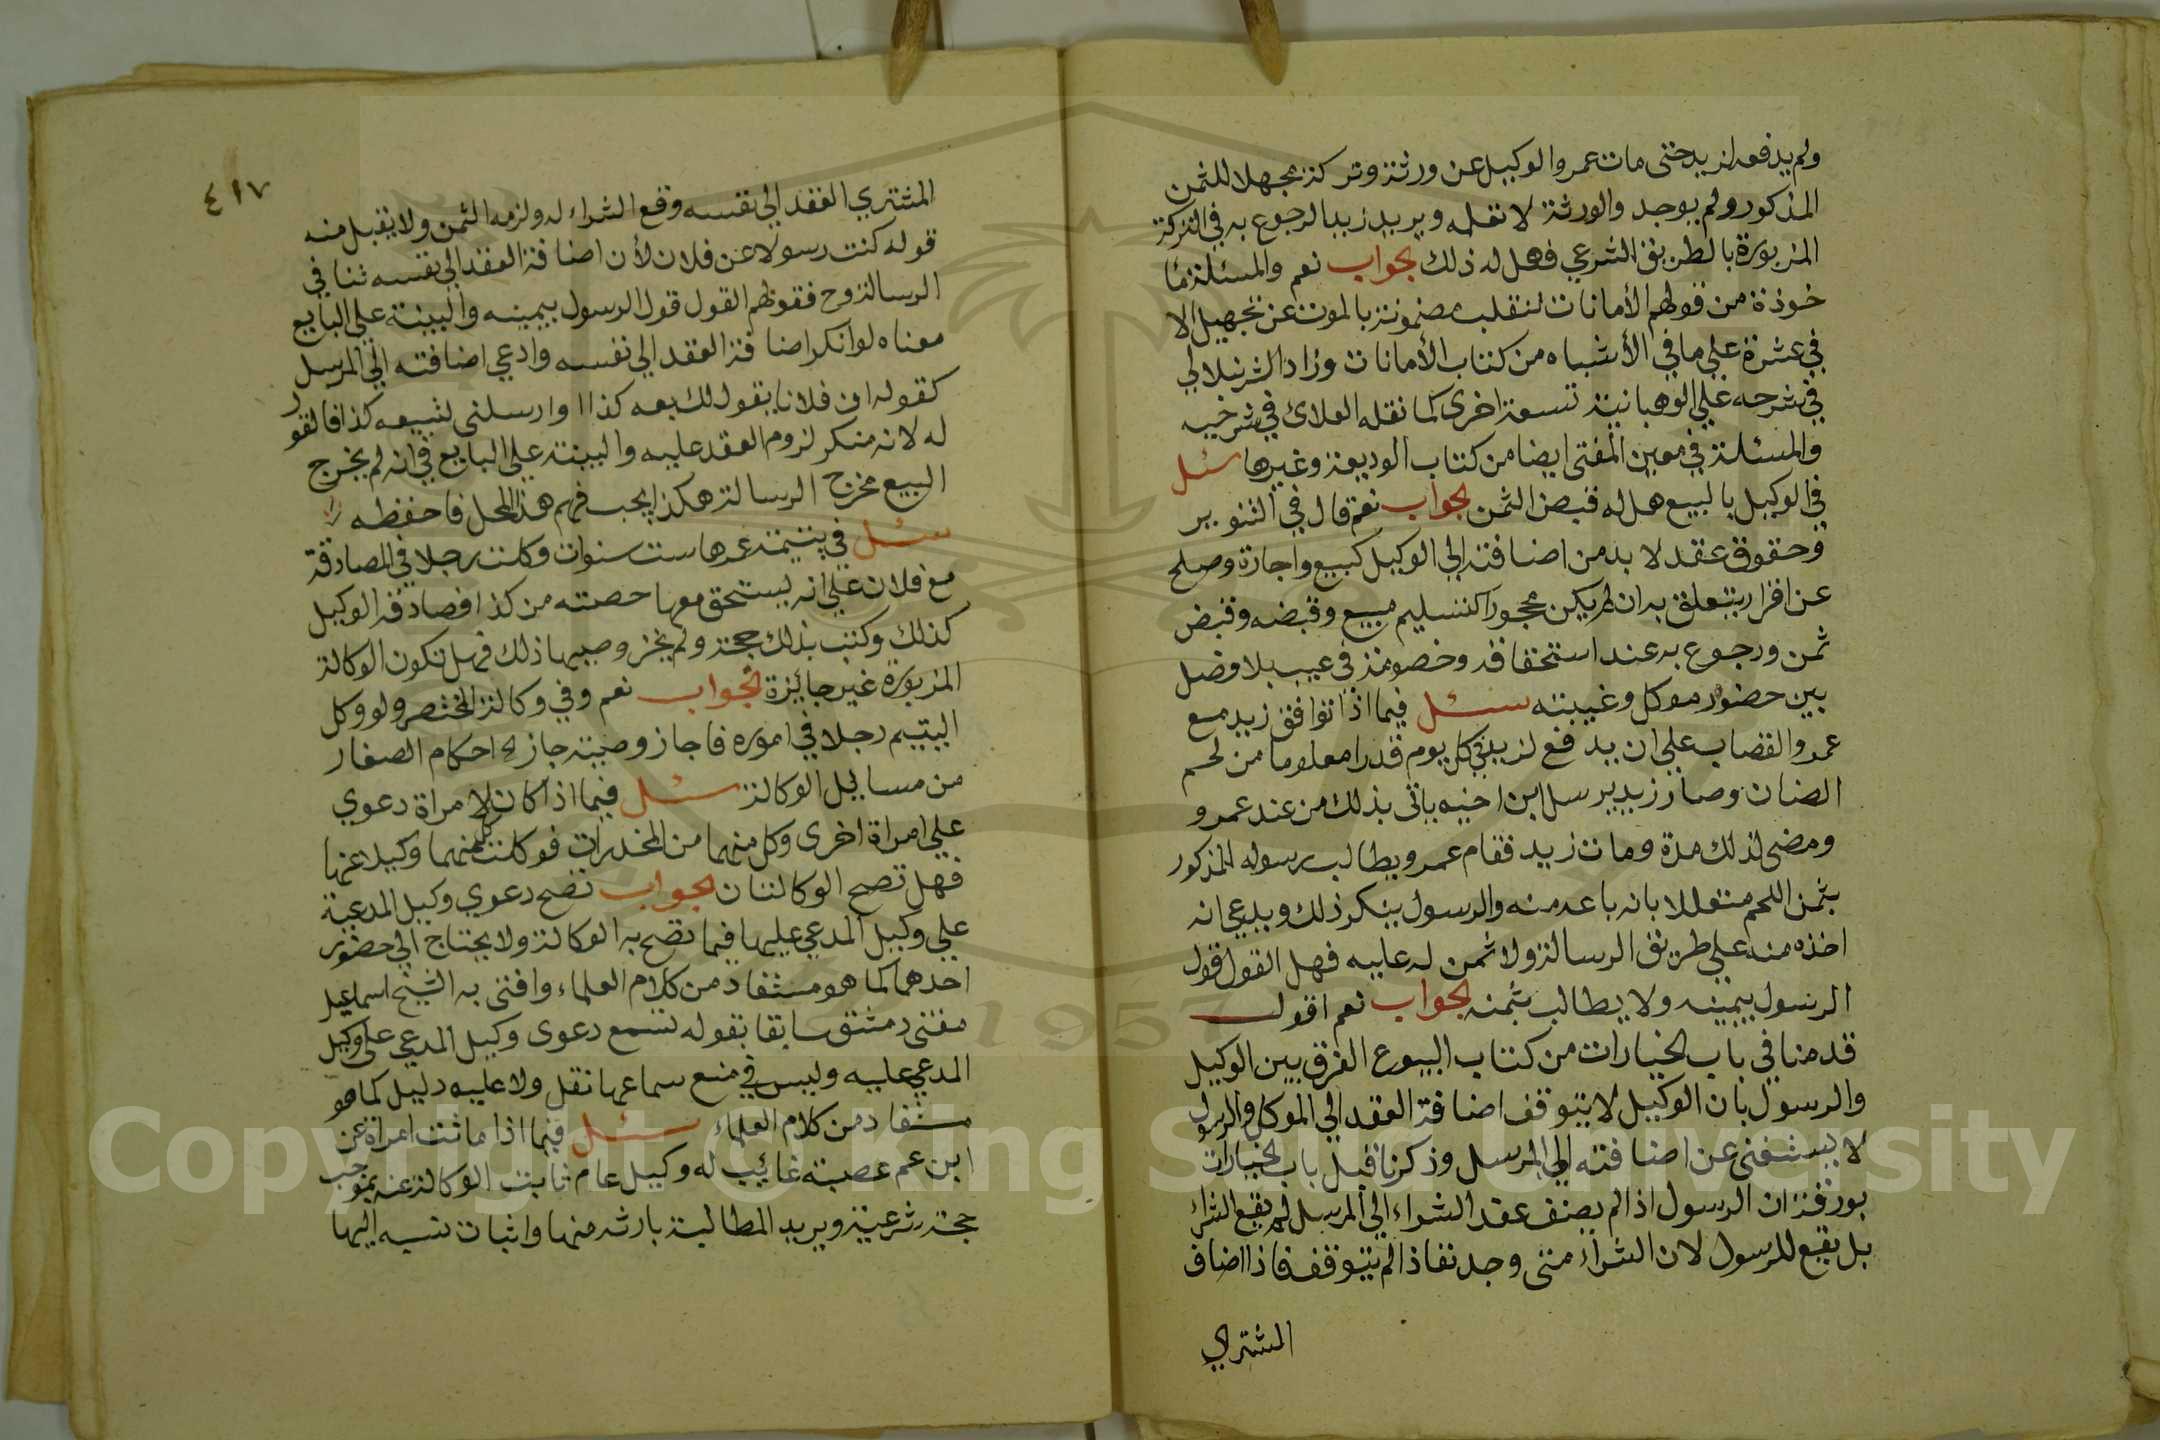 ولم يدفعه لزيد حتى مات عمرو الوكيل عن ورثة وتركة مجهلا للثمن
المذكور ولم يوجد والورثة لا تعلمه ويريد زيد الرجوع به في التركة
المزبورة بالطريق الشرعي فهل له ذلك الجواب نعم والمسئلة مأ
خوذة من قولهم الأمانات تنقلب مضمونة بالموت عن تجهيل الا
في عشرة علي ما في الأشباه من كتاب الأمانات وزاد الشرنبلالي
في شرحه علي الوهبانية تسعة اخرى كما نقله العلائ في شرخيه
والمسئلة في معين المفتي ايضا من كتاب الوديعة وغيرها سئل
في الوكيل بالبيع هل له قبض الثمن الجواب نعم قال في التنوير
وحقوق عقد لا بد من اضافته الي الوكيل كبيع واجارة وصلح
عن اقرار يتعلق به ان لم يكن محجورا كتسليم مبيع وقبضه وقبض
ثمن ورجوع به عند استحقاقه وخصومة في عيب بلا وفصل
بين حضور موكل وغيبته سئل فيما اذا توافق زيد مع
عمرو القصاب علي ان يدفع لزيد في كل يوم قدرا معلوما من لحم
الضان وصار زيد يرسل ابن اخيه ياتي بذلك من عند عمرو
ومضى لذلك مدة ومات زيد فقام عمرو يطالب رسوله المذكور
بثمن اللحم متعللا بانه باعه منه والرسول ينكر ذلك ويدعي انه
اخذه منه علي طريق الرسالة ولا ثمن له عليه فهل القول قول
الرسول بيمينه ولا يطالب بثمنه الجواب نعم اقول
قدمنا في باب الخيارات من كتاب البيوع الفرق بين الوكيل
والرسول بان الوكيل لا يتوقف اضافة العقد الي الموكل والرسول
لا يستغني عن اضافته الي المرسل وذكرنا قبيل باب الخيارات
بورقة ان الرسول اذا لم يضف عقد الشراء الي المرسل لم يقع الشراء
بل يقع للرسول لان الشراء متى وجد نفاذا لم يتوقف فاذا اضاف
المشتري
٤١٧
المشتري العقد الي نفسه وقع الشراء له ولزمه الثمن ولا يقبل منه
قوله كنت رسولا عن فلان لأن اضافة العقد الي نفسه تنافي
الرسالة وح فقولهم القول قول الرسول بيمينه والبينة علي البايع
معناه لو انكر اضافة العقد الي نفسه وادعي اضافته الي المرسل
كقوله ان فلانا يقول لك بعه كذا او ارسلني لتبيعه كذا فالقو
له لانه منكر لزوم العقد عليه والبينة علي البايع في انه لم يخرج
البيع مخرج الرسالة هكذا يجب فهم هذا المحل فاحفظه
سئل في يتيمة عمرها ست سنوات وكلت رجلا في المصادقة
مع فلان علي انه يستحق معها حصته من كذا فصادقه الوكيل
كذلك وكتب بذلك حجة ولم يجز وصيها ذلك فهل تكون الوكالة
المزبورة غير جائزة الجواب نعم وفي وكالة المختصر ولو وكل
اليتيم رجلا في اموره فاجاز وصيه جاز له احكام الصغار
من مسايل الوكالة سئل فيما اذا كان لامراة دعوي
علي امراة اخرى وكل منهما من المخدرات فوكلت كل منهما وكيلا عنها
فهل تصح الوكالتان الجواب تصح دعوي وكيل المدعية
علي وكيل المدعي عليها فيما تصح به الوكالة ولا يحتاج الي حضور
احدهما كما هو مستفاد من كلام العلماء وافتى به الشيخ اسماعيل
مفتي دمشق سابقا بقوله تسمع دعوى وكيل المدعي على وكيل
المدعي عليه وليس في منع سماعها نقل ولا عليه دليل كما هو
مستفاد من كلام العلماء سئل فيما اذا ماتت امراة عن
ابن عم عصبته غائب له وكيل عام ثابت الوكالة عنه بموجب
حجة شرعية ويريد المطالبة بارثه منها واثبات نسبه اليها
Copyright © King Saud University
1957